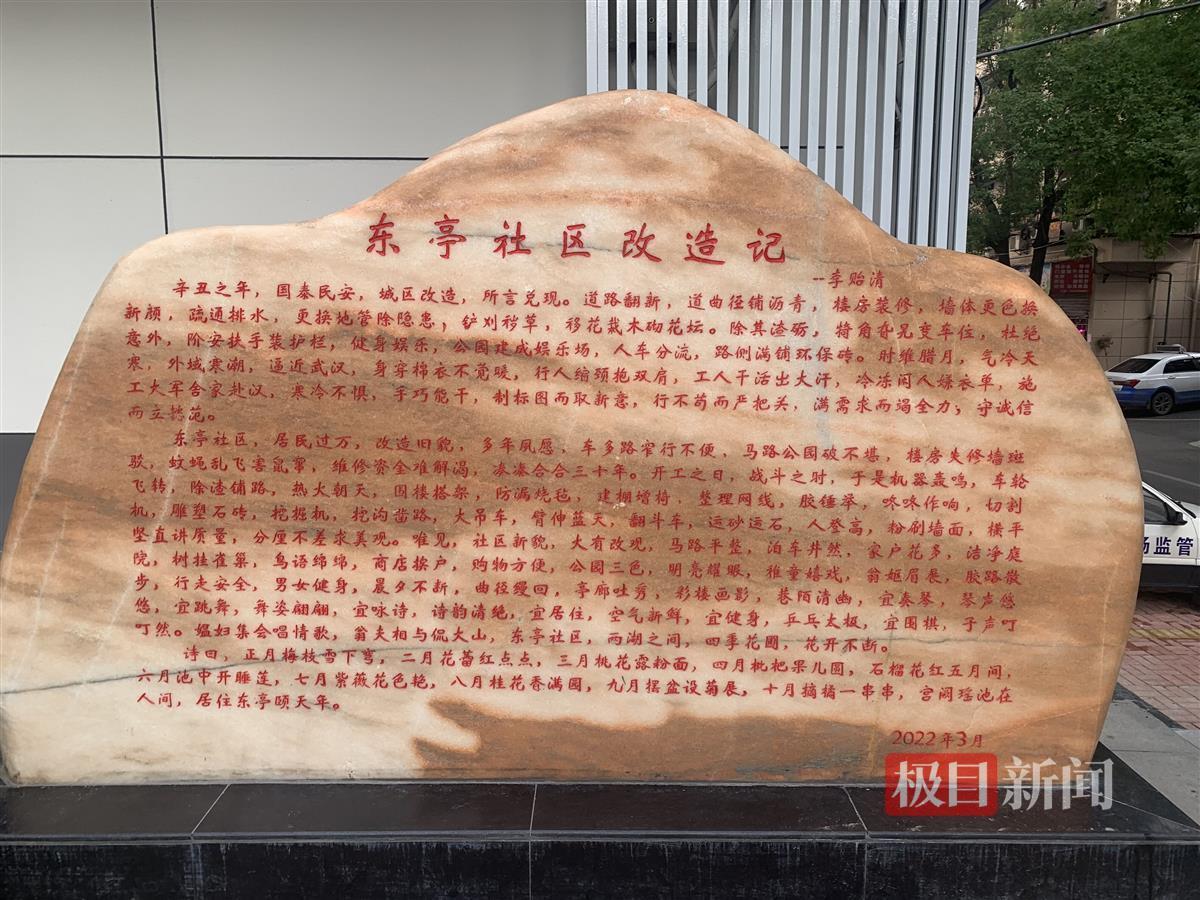 东亭社区改造记
--李贻清
辛丑之年，国泰民安，城区改造，所言兑现。道路翻新，道曲径铺沥青，楼房装修，墙体更色换
新颜，疏通排水，更换地管除隐患；铲刈秽草，移花栽木砌花坛。除其渣砺，犄角旮旯变车位，杜绝
意外，阶安扶手装护栏，健身娱乐，公园建成娱乐场，人车分流，路侧满铺环保砖。时维腊月，气冷天
寒，外域寒潮，逼近武汉，身穿棉衣不觉暖，行人缩颈抱双肩，工人干活出大汗，冷冻闲人嫌衣单，施
工大军舍家赴汉，寒冷不惧，手巧能干，制标图而取新意，行不苟而严把关，满需求而竭全力；守诚信
而立范。
东亭社区，居民过万，改造旧貌，多年夙愿，车多路窄行不便，马路公园破不堪，楼房失修墙斑
驳，蚊蝇乱飞害鼠窜，维修资金难解渴，凑凑合合三十年。开工之日，战斗之时，于是机器轰鸣，车轮
飞转，除渣铺路，热火朝天，围楼搭架，防漏烧毡，建棚增椅，整理网线，胶锤举，咚咚作响，切割
机，雕塑石砖，挖掘机，挖沟凿路，大吊车，臂伸蓝天，翻斗车，运砂运石，人登高，粉刷墙面，横平
竖直讲质量，分厘不差求美观。唯见，社区新貌，大有改观，马路平整，泊车井然，家户花多，洁净庭
院，树挂雀巢，鸟语绵绵，商店挨户，购物方便，公园三色，明亮耀眼，稚童嬉戏，翁妪眉展，胶路散
步，行走安全，男女健身，晨夕不断，曲径缦回，亭廊吐秀，彩楼画影，巷陌清幽，宜奏琴，琴声悠
悠，宜跳舞，舞姿翩翩，宜咏诗，诗韵清绝，宜居住，空气新鲜，宜健身，乒乓太极，宜围棋，子声叮
叮然。媪妇集会唱情歌，翁夫相与侃大山，东亭社区，两湖之间，四季花圃，花开不断。
诗曰，正月梅枝雪下弯，二月花蕾红点点，三月桃花露粉面，四月枇杷果儿圆，石榴花红五月间，
六月池中开睡莲，七月紫薇花色艳，八月桂花香满园，九月摆盆设菊展，十月摘橘一串串，宫阙瑶池在
人间，居住东亭颐天年。
2022年3月
极目新闻
场监管